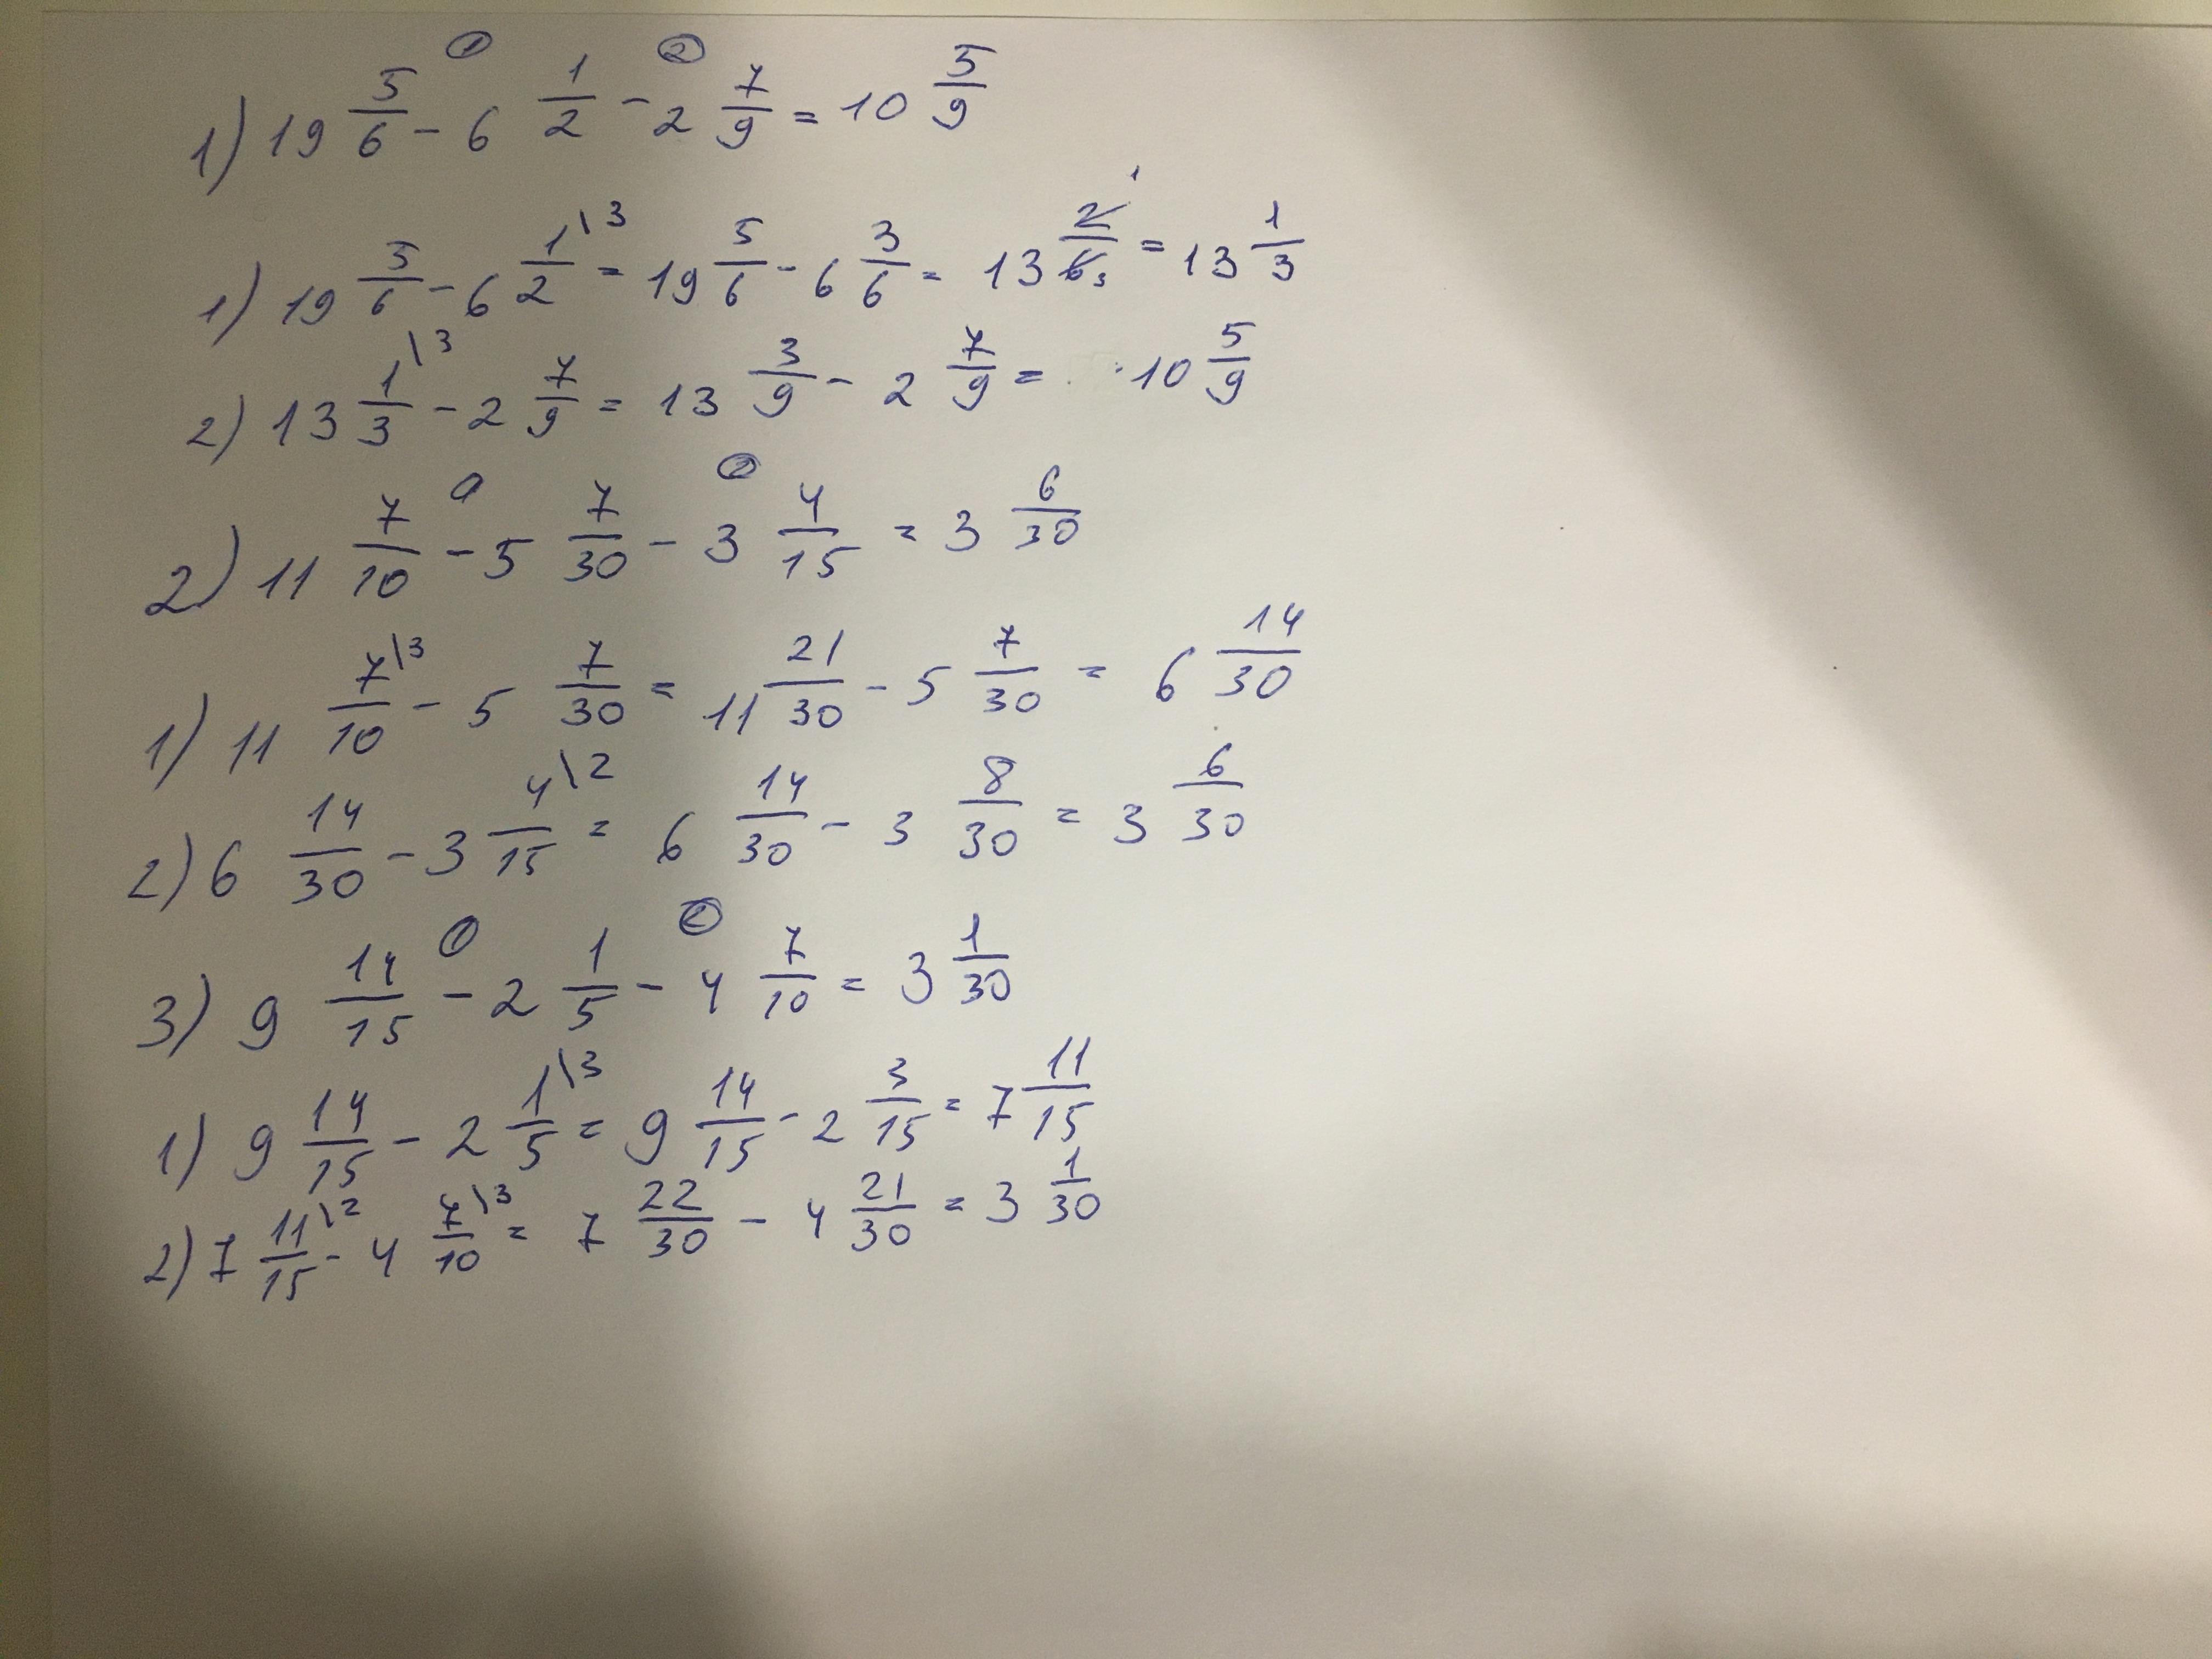 1) 19 5/6 - 6 1/2 - 2 7/9 = 10 5/9
1) 19 5/6 - 6 1/2 \3 = 19 5/6 - 6 3/6 = 13 2/6 1 3 = 13 1/3
2) 13 1/3 \3 - 2 7/9 = 13 3/9 - 2 7/9 = 10 5/9
2) 11 7/10 - 5 7/30 - 3 4/15 = 3 6/30
1) 11 7/10 \3 - 5 7/30 = 11 21/30 - 5 7/30 = 6 14/30
2) 6 14/30 - 3 4/15 \2 = 6 14/30 - 3 8/30 = 3 6/30
3) 9 14/15 - 2 1/5 - 4 7/10 = 3 1/30
1) 9 14/15 - 2 1/5 \3 = 9 14/15 - 2 3/15 = 7 11/15
2) 7 11/15 \2 - 4 7/10 \3 = 7 22/30 - 4 21/30 = 3 1/30